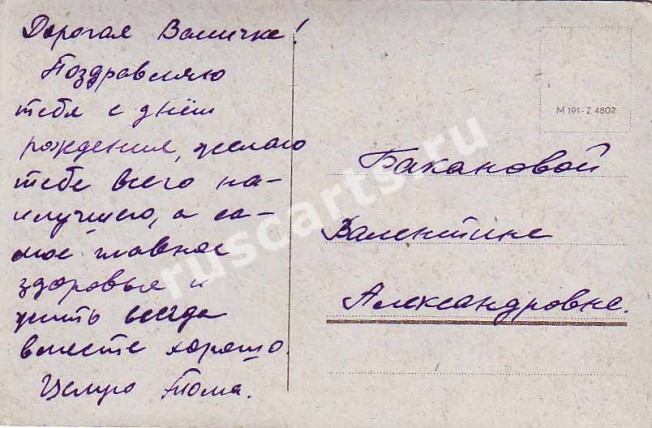 Дорогая Валичка!
Поздравляю
тебя с днём
рождения, желаю
тебе всего на-
илучшего, а са-
мое главное
здоровья и
жить всегда
вместе хорошо.
Целую Тома.
M 191-Z 4802
Бакановой
Валентине
Александровне.
ruscarts.ru